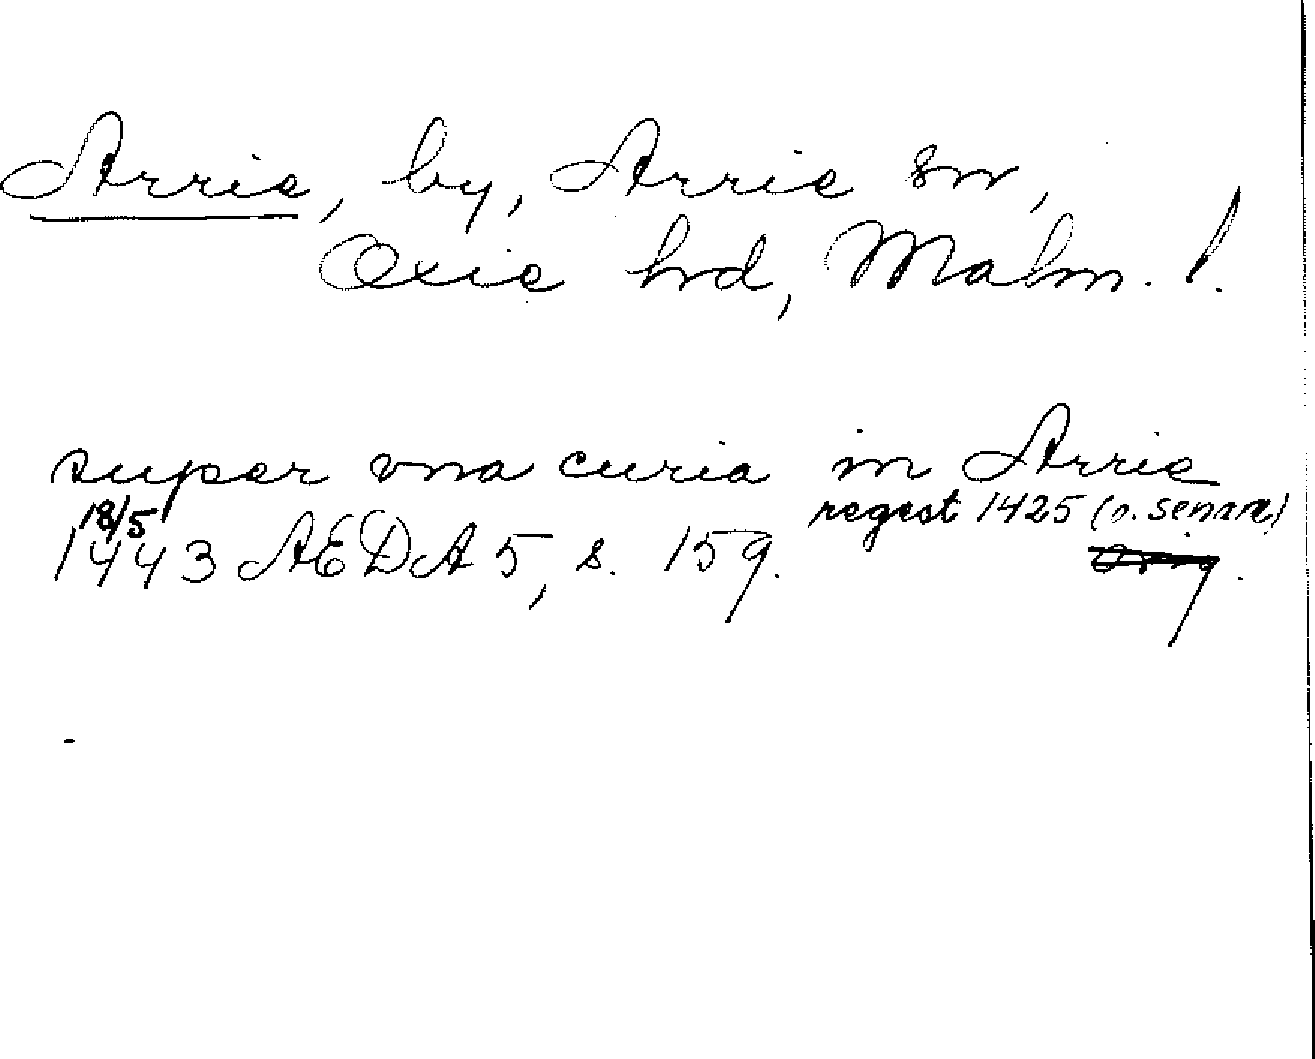 Arrie, by, Arrie sn,
Oxie hrd, Malm. l.
super vna curia in Arrie
18/5 regest 1425 (o. senare)
1443 AEDA 5, s. 159.